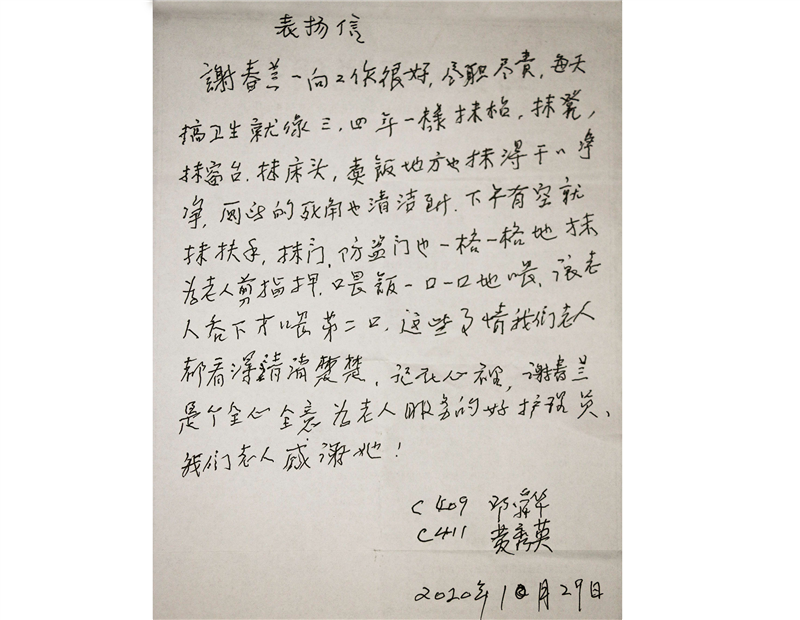 表扬信
謝春兰一向工作很好,尽职尽责,每天
搞卫生就像三、四年一樣抹枱,抹凳,
抹窗台.抹床头,卖飯地方也抹得干干净
净,厕所的死角也清洁到.下午有空就
抹扶手,抹门,防盗门也一格一格地抹
为老人剪指押.喂飯一口一口地喂,讓老
人吞下才喂第二口.这些事情我们老人
都看得清清楚楚,记在心裡,谢春兰
是个全心全意为老人服务的好护理员、
我们老人感谢她!
C409 邓舜华
C411 黄秀英
2020年10月29日